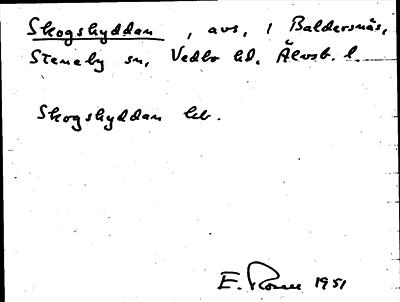 Skogshyddan, avs. i Baldersnäs,
Steneby sn, Vedbo hd, Älvsb. l.
Skogshyddan leb.
E. 1951